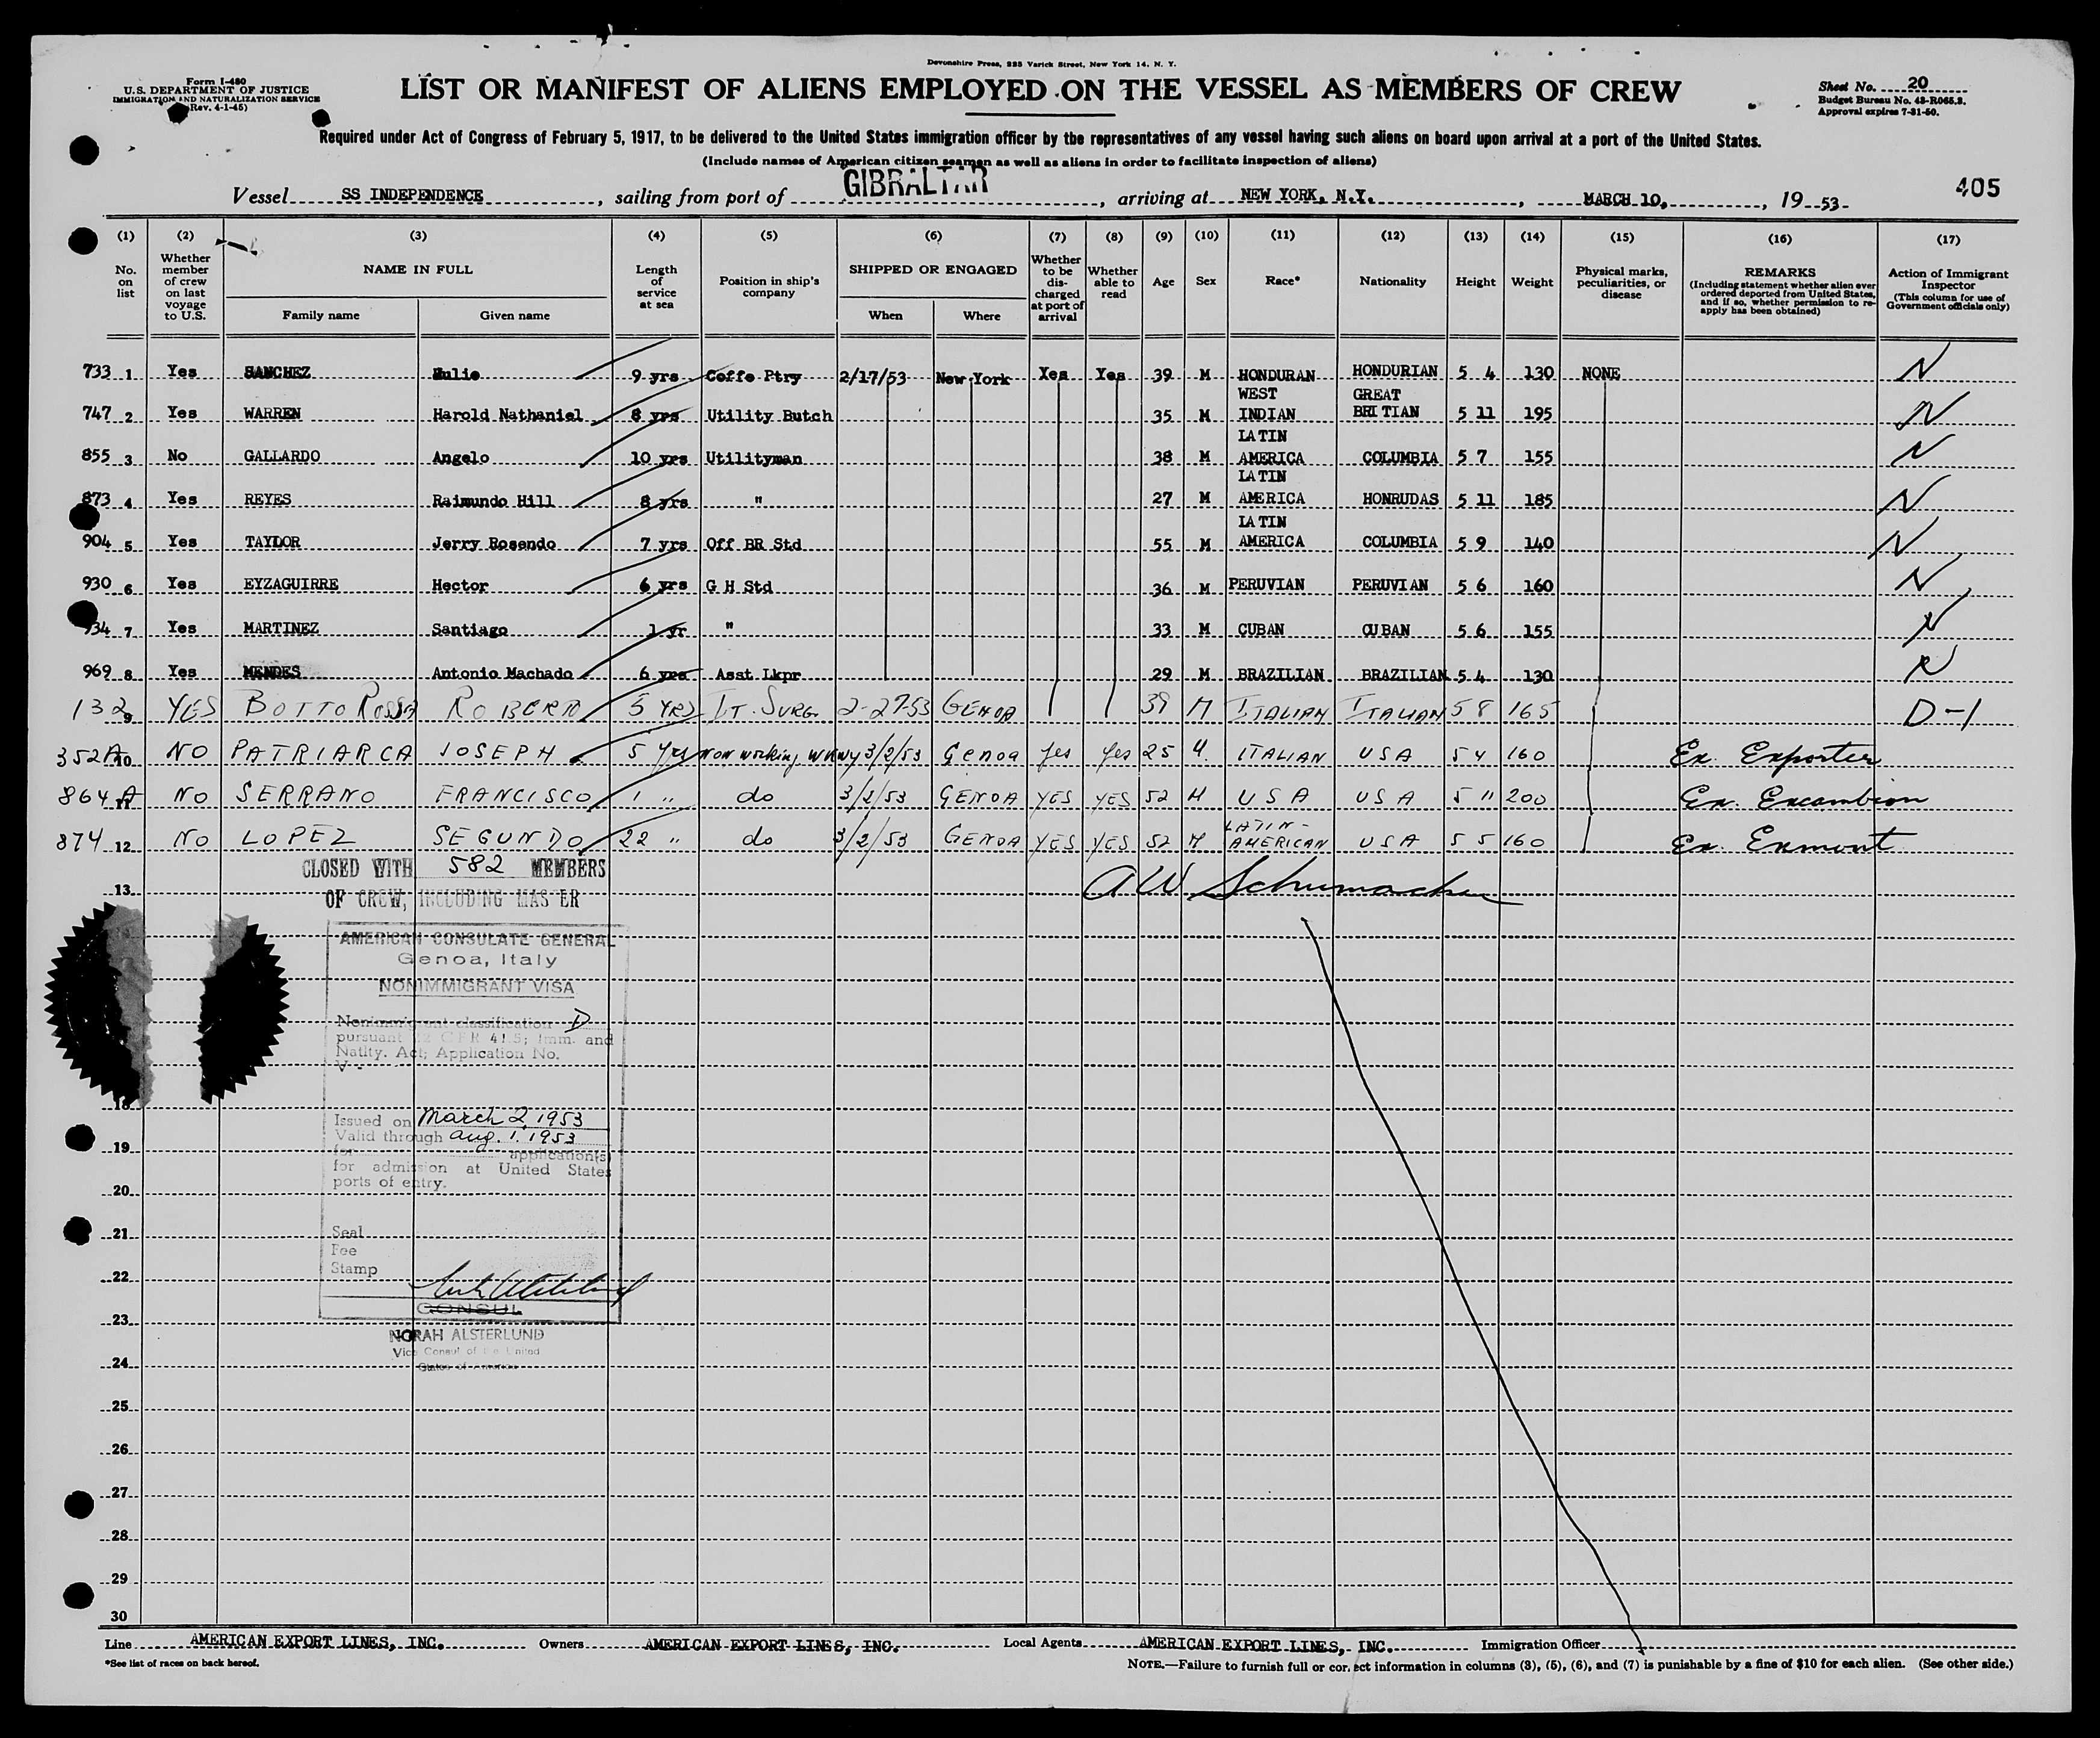 Devonshire Press, 225 Varick Street, New York 14, N. Y.
Form I-480
U.S. DEPARTMENT OF JUSTICE
IMMIGRATION AND NATURALIZATION SERVICE
(Rev. 4-1-45)
LIST OR MANIFEST OF ALIENS EMPLOYED ON THE VESSEL AS MEMBERS OF CREW
Sheet No. 20
Budget Bureau No. 43-R065.2.
Approval expires 7-31-50.
Required under Act of Congress of February 5, 1917, to be delivered to the United States immigration officer by the representatives of any vessel having such aliens on board upon arrival at a port of the United States.
(Include names of American citizen seamen as well as aliens in order to facilitate inspection of aliens)
Vessel SS INDEPENDENCE, sailing from port of GIBRALTAR, arriving at NEW YORK, N.Y., MARCH 10, 1953
405
(1) No. on list
(2) Whether member of crew on last voyage to U.S.
(3) NAME IN FULL Family name Given name
(4) Length of service at sea
(5) Position in ship's company
(6) SHIPPED OR ENGAGED When Where
(7) Whether to be discharged at port of arrival
(8) Whether able to read
(9) Age
(10) Sex
(11) Race*
(12) Nationality
(13) Height
(14) Weight
(15) Physical marks, peculiarities, or disease
(16) REMARKS (Including statement whether alien ever ordered deported from United States, and if so, whether permission to reapply has been obtained)
(17) Action of Immigrant Inspector (This column for use of Government officials only)
733 1 Yes SANCHEZ Julio 9 yrs Coffe Ptry 2/17/53 New York Yes Yes 39 M HONDURAN HONDURIAN 5 4 130 NONE N
747 2 Yes WARREN Harold Nathaniel 8 yrs Utility Butch 35 M WEST INDIAN GREAT BRITIAN 5 11 195 N
855 3 No GALLARDO Angelo 10 yrs Utilityman 38 M LATIN AMERICA COLUMBIA 5 7 155 N
873 4 Yes REYES Raimundo Hill 8 yrs " 27 M LATIN AMERICA HONRUDAS 5 11 185 N
904 5 Yes TAYLOR Jerry Rosendo 7 yrs Off BR Std 55 M LATIN AMERICA COLUMBIA 5 9 140 N
930 6 Yes EYZAGUIRRE Hector 6 yrs G H Std 36 M PERUVIAN PERUVIAN 5 6 160 N
934 7 Yes MARTINEZ Santiago 1 yr " 33 M CUBAN CUBAN 5 6 155 N
969 8 Yes MENDES Antonio Machado 6 yrs Asst Lkpr 29 M BRAZILIAN BRAZILIAN 5 4 130 N
132 9 YES BOTTO ROSSA 5 YRS IT. SURG. 2-27-53 GENOA 39 M ITALIAN ITALIAN 5 8 165 D-1
352A 10 NO PATRIARCA JOSEPH 5 Yrs Non working 3/2/53 Genoa Yes Yes 25 M. ITALIAN USA 5 4 160 Ex. Exporter
864 A 11 NO SERRANO FRANCISCO 1 " do 3/2/53 GENOA YES YES 52 M USA USA 5 11 200 Ex. Excambion
874 12 NO LOPEZ SEGUNDO 22 " do 3/2/53 GENOA YES YES 52 M LATIN-AMERICAN USA 5 5 160 Ex. Exmont
CLOSED WITH 582 MEMBERS
OF CREW, INCLUDING MASTER
13 AW Schumacher
AMERICAN CONSULATE GENERAL
Genoa, Italy
NONIMMIGRANT VISA
Nonimmigrant classification D
pursuant 22 CFR 41.5; Imm. and
Natlty. Act; Application No.
V -
18
Issued on March 2, 1953
Valid through Aug. 1, 1953
19
for application(s)
for admission at United States
ports of entry.
20
21
Seal
Fee
Stamp
22
CONSUL
23
NORAH ALSTERLUND
Vice Consul of the United
States of America
24
25
26
27
28
29
30
Line AMERICAN EXPORT LINES, INC. Owners AMERICAN EXPORT LINES, INC. Local Agents AMERICAN EXPORT LINES, INC. Immigration Officer
*See list of races on back hereof.
NOTE.—Failure to furnish full or correct information in columns (3), (5), (6), and (7) is punishable by a fine of $10 for each alien. (See other side.)